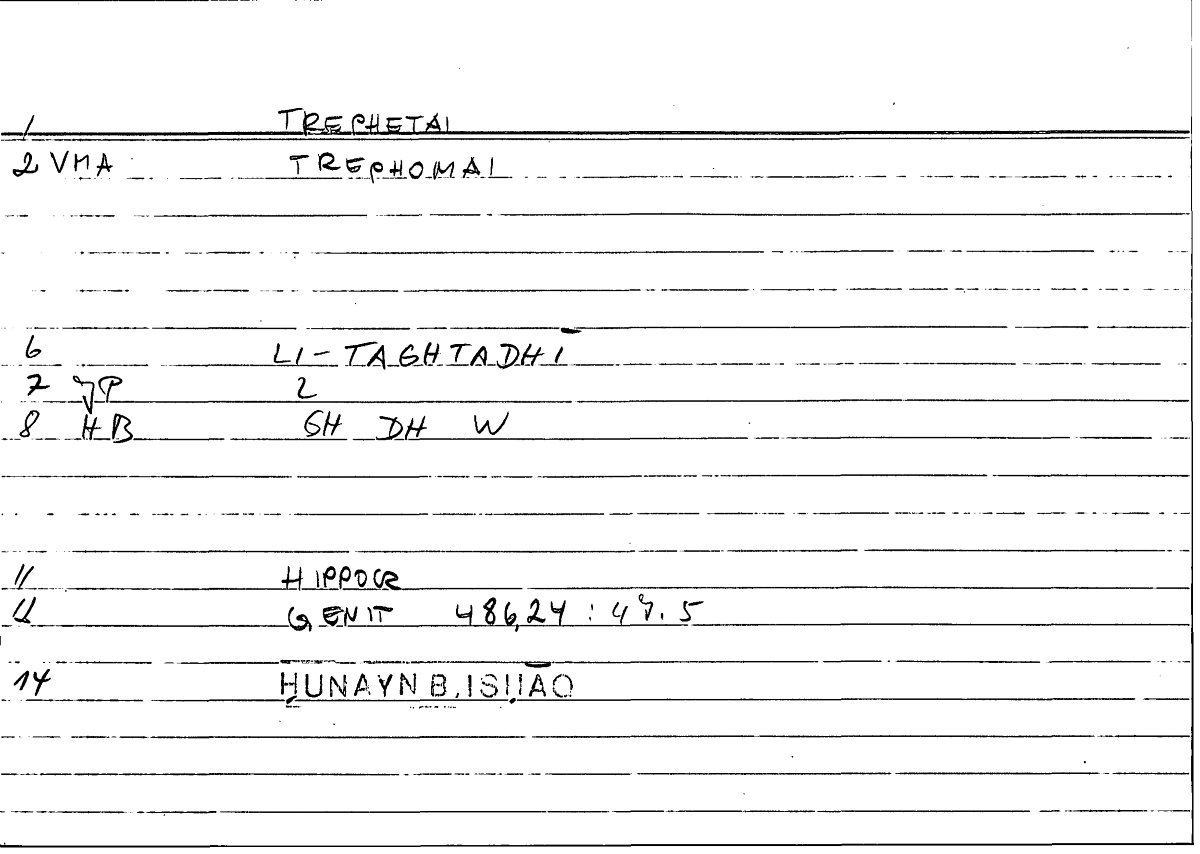 1 TREPHETAI
2 VMA TREPHOMAI
6 LI-TAGHTADHĪ
7 JP 2
8 HB GH DH W
11 HIPPOCR
12 GENIT 486,24 : 47.5
14 ḤUNAYN B. ISḤĀQ